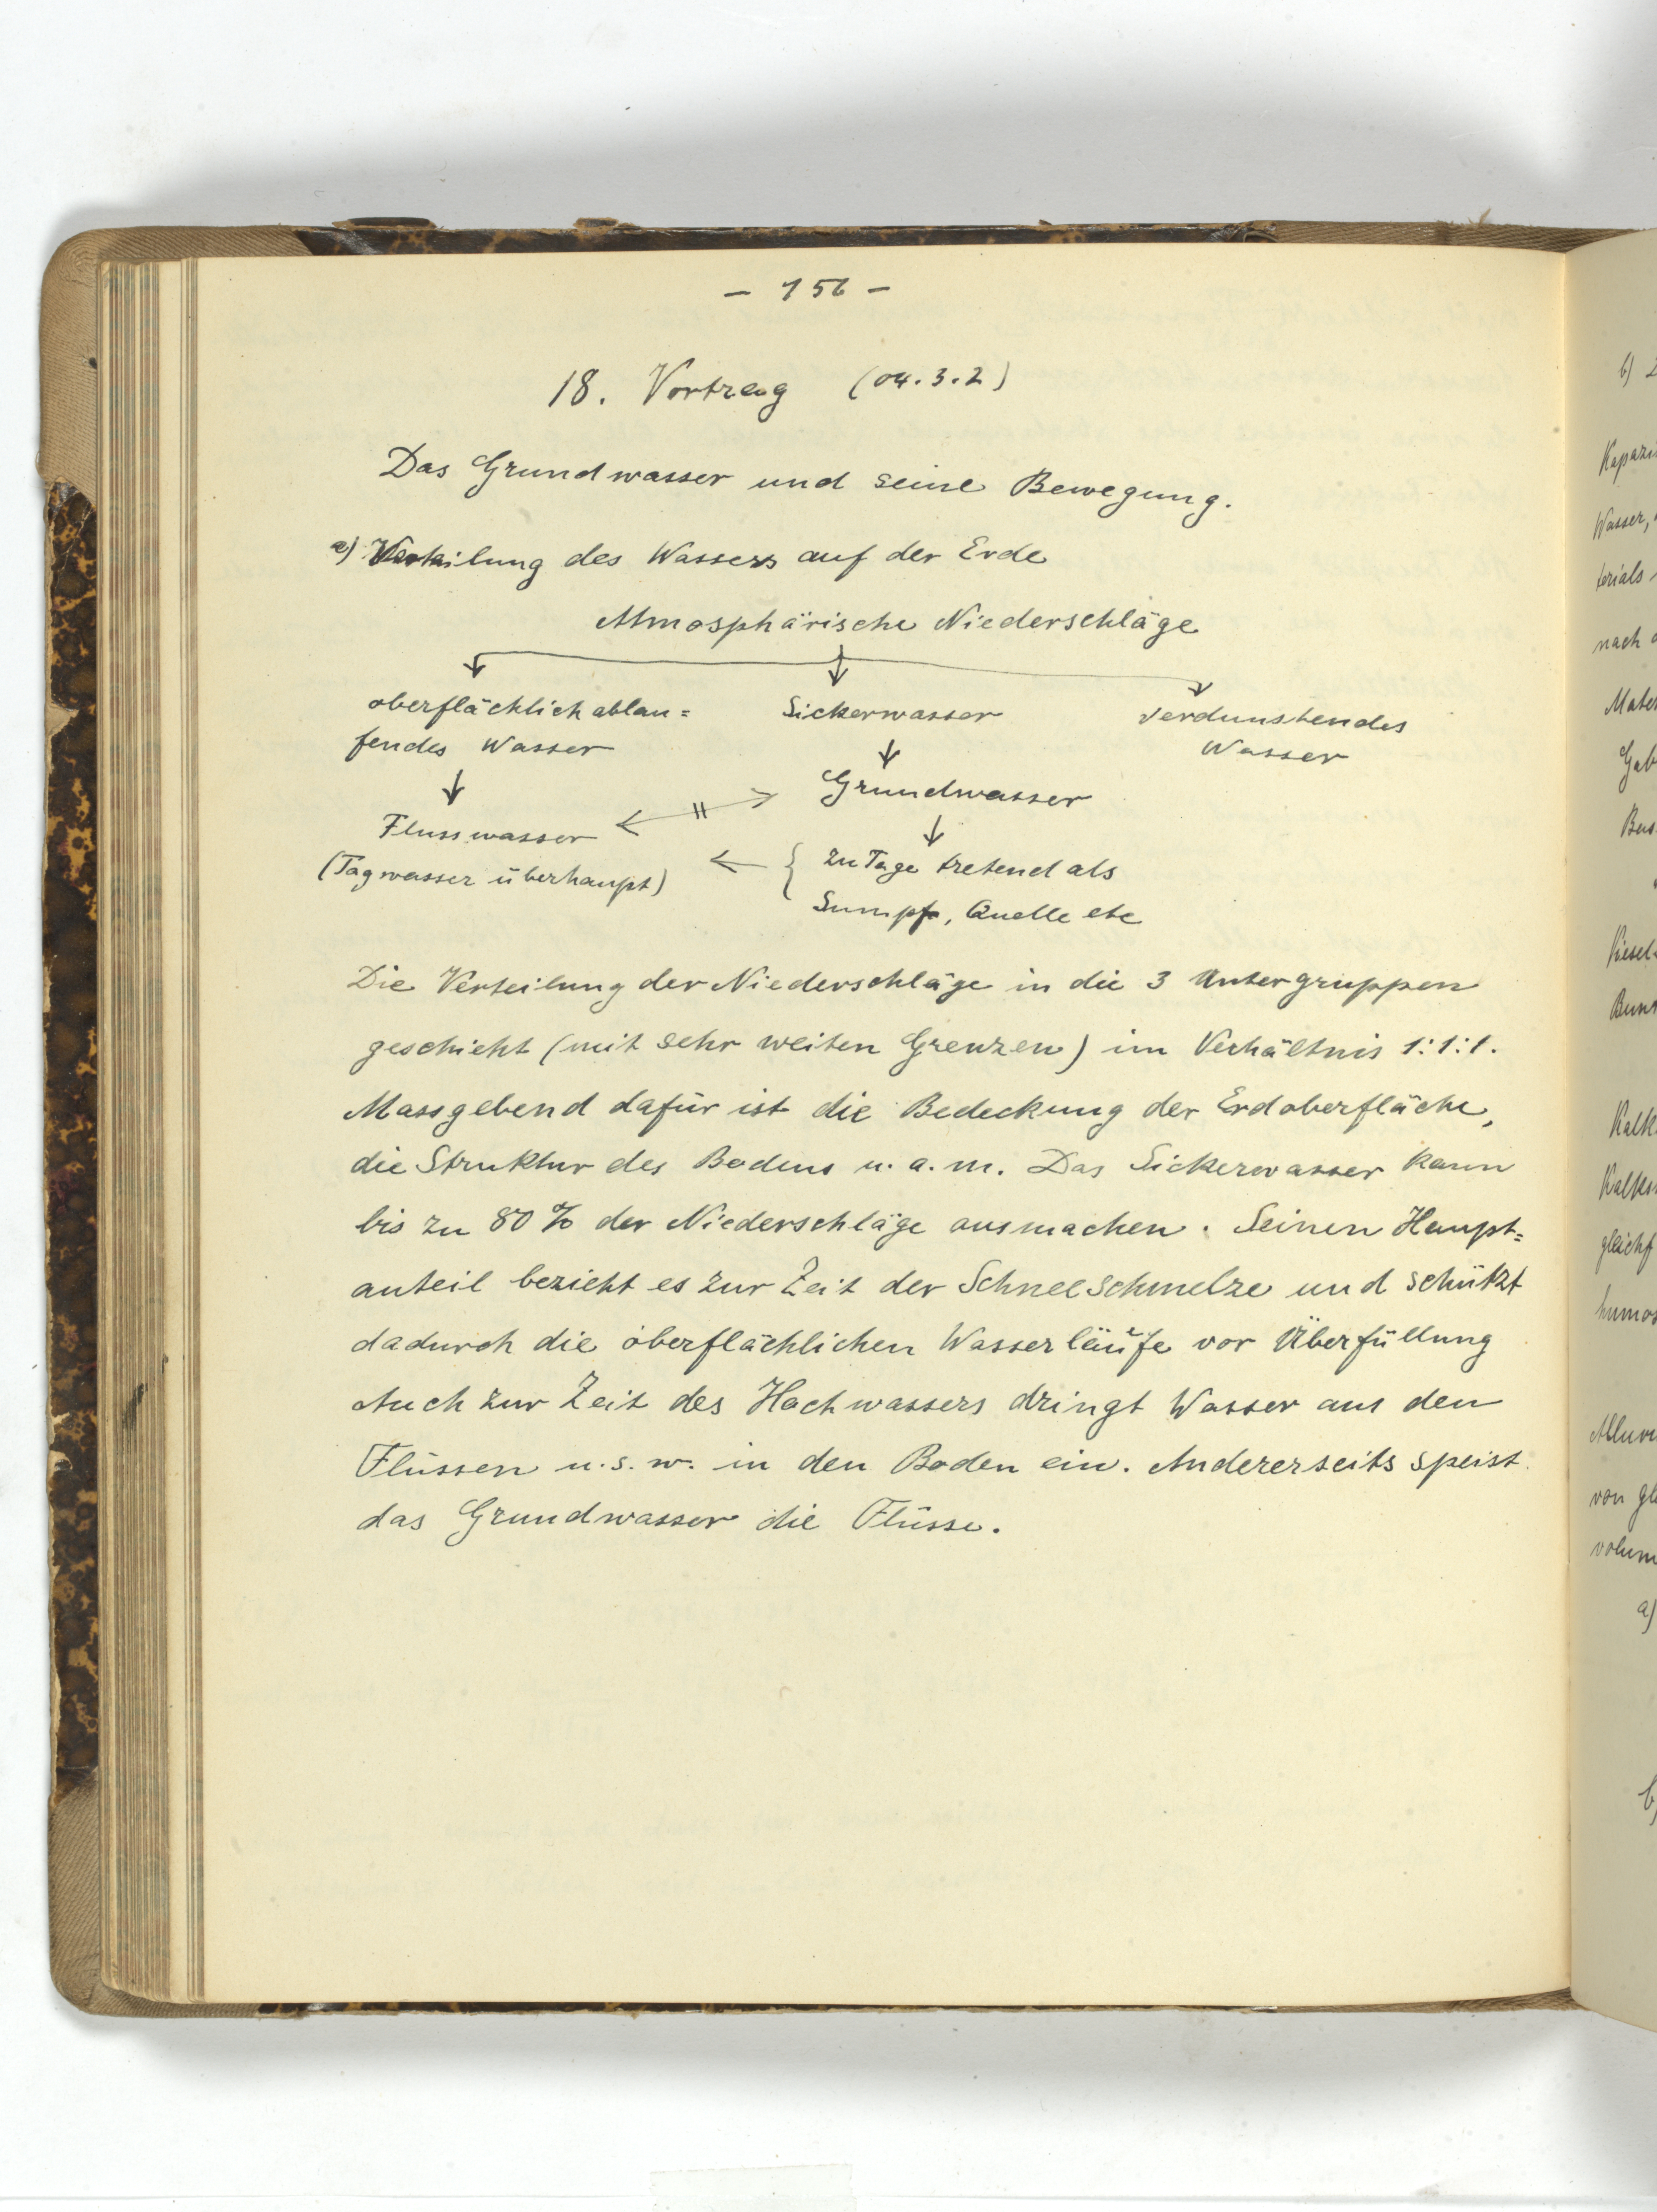 - 156 -
18. Vortrag (04.3.2)
Das Grundwasser und seine Bewegung.
a) Verteilung des Wassers auf der Erde
Atmosphärische Niederschläge
oberflächlich ablau=
fendes Wasser
Sickerwasser
verdunstendes
Wasser
Grundwasser
Flusswasser
(Tagwasser überhaupt)
zu Tage tretend als
Sumpf, Quelle etc
Die Verteilung der Niederschläge in die 3 Untergruppen
geschieht (mit sehr weiten Grenzen) im Verhältnis 1:1:1.
Massgebend dafür ist die Bedeckung der Erdoberfläche,
die Struktur des Bodens u. a. m. Das Sickerwasser kann
bis zu 80 % der Niederschläge ausmachen. Seinen Haupt=
anteil bezieht es zur Zeit der Schneeschmelze und schützt
dadurch die oberflächlichen Wasserläufe vor Überfüllung
Auch zur Zeit des Hochwassers dringt Wasser aus den
Flüssen u. s. w. in den Boden ein. Andererseits speist
das Grundwasser die Flüsse.
b)
Wasser,
terials
nach
Kalk
a)